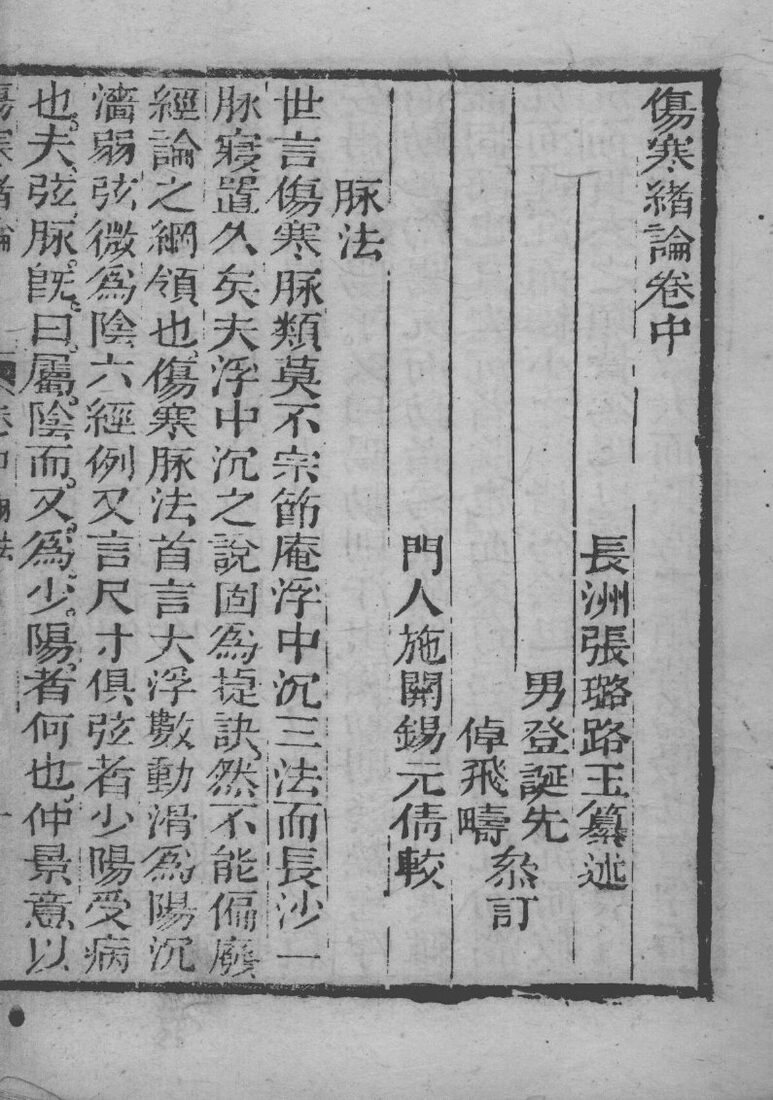 傷寒緒論卷中
長洲張璐路玉纂述
男登誕先
倬飛疇
叅訂
門人施開錫元倩較
脉法
世言傷寒脉類莫不宗節庵浮中沉三法而長沙一
脉寢置久矣夫浮中沉之說固爲捷訣然不能偏廢
經論之綱領也傷寒脉法首言大浮數動滑爲陽沉
濇弱弦微爲陰六經例又言尺寸俱弦者少陽受病
也夫弦脉旣曰屬陰而又爲少陽者何也仲景意以
傷寒緒論 卷中 脉法 一